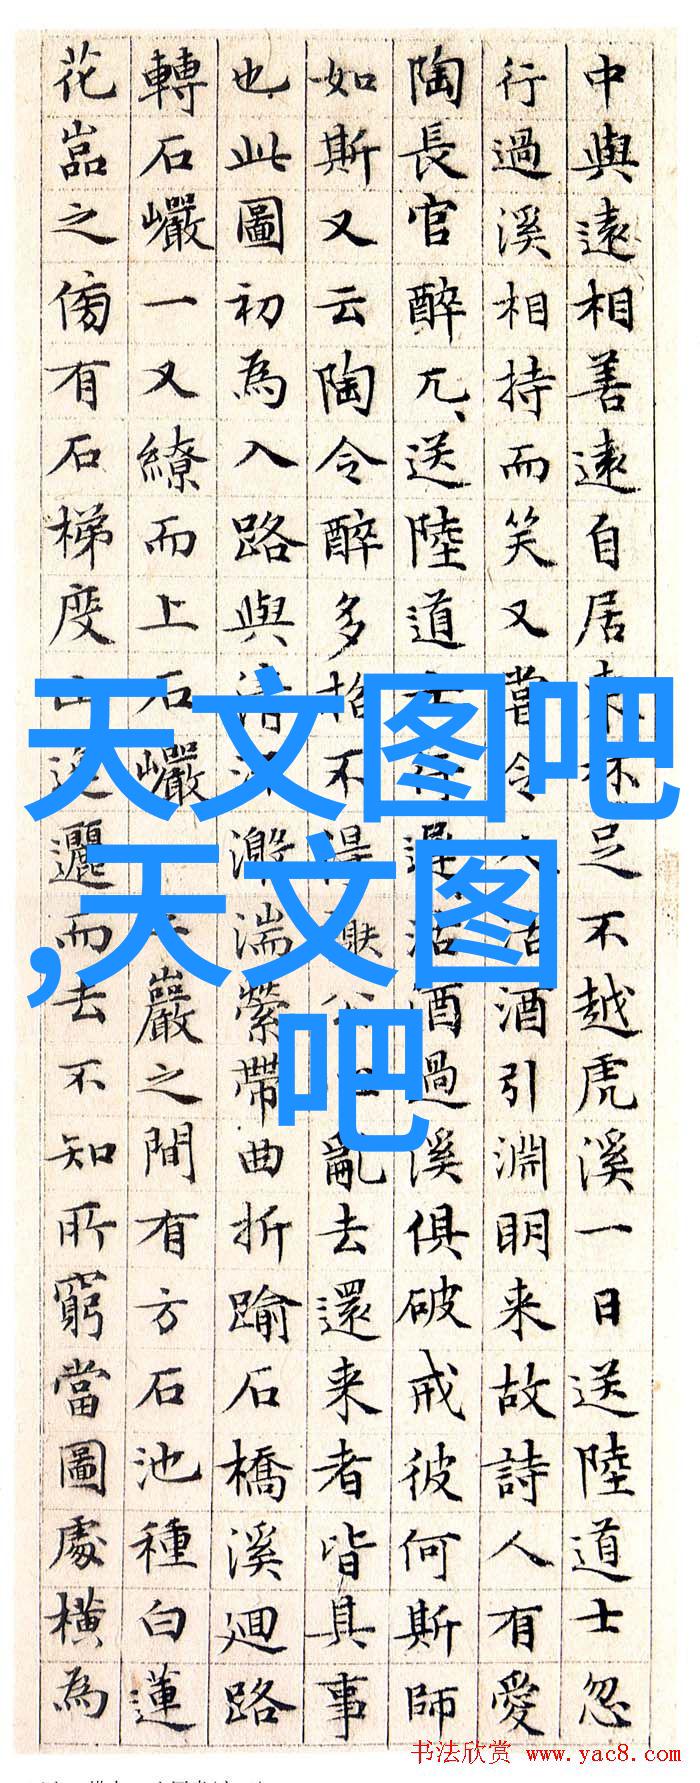 中與遠相善遠自居東林足不越虎溪一日送陸道士忽
行過溪相持而笑又嘗令人沽酒引淵明来故詩人有愛
陶長官醉兀、送陸道士行遲沽酒過溪俱破戒彼何斯師
如斯又云陶令醉多招不得公亂去還来者皆其事
也此圖初為入路與清激湍縈帶曲折踰石橋溪廻路
轉石巖一又繚而上石巖巖之間有方石池種白蓮
花嵓之傍有石梯度山迤邐而去不知所窮當圖處横為
天文图吧
,天文图
吧
书法欣赏 www.yac8.com